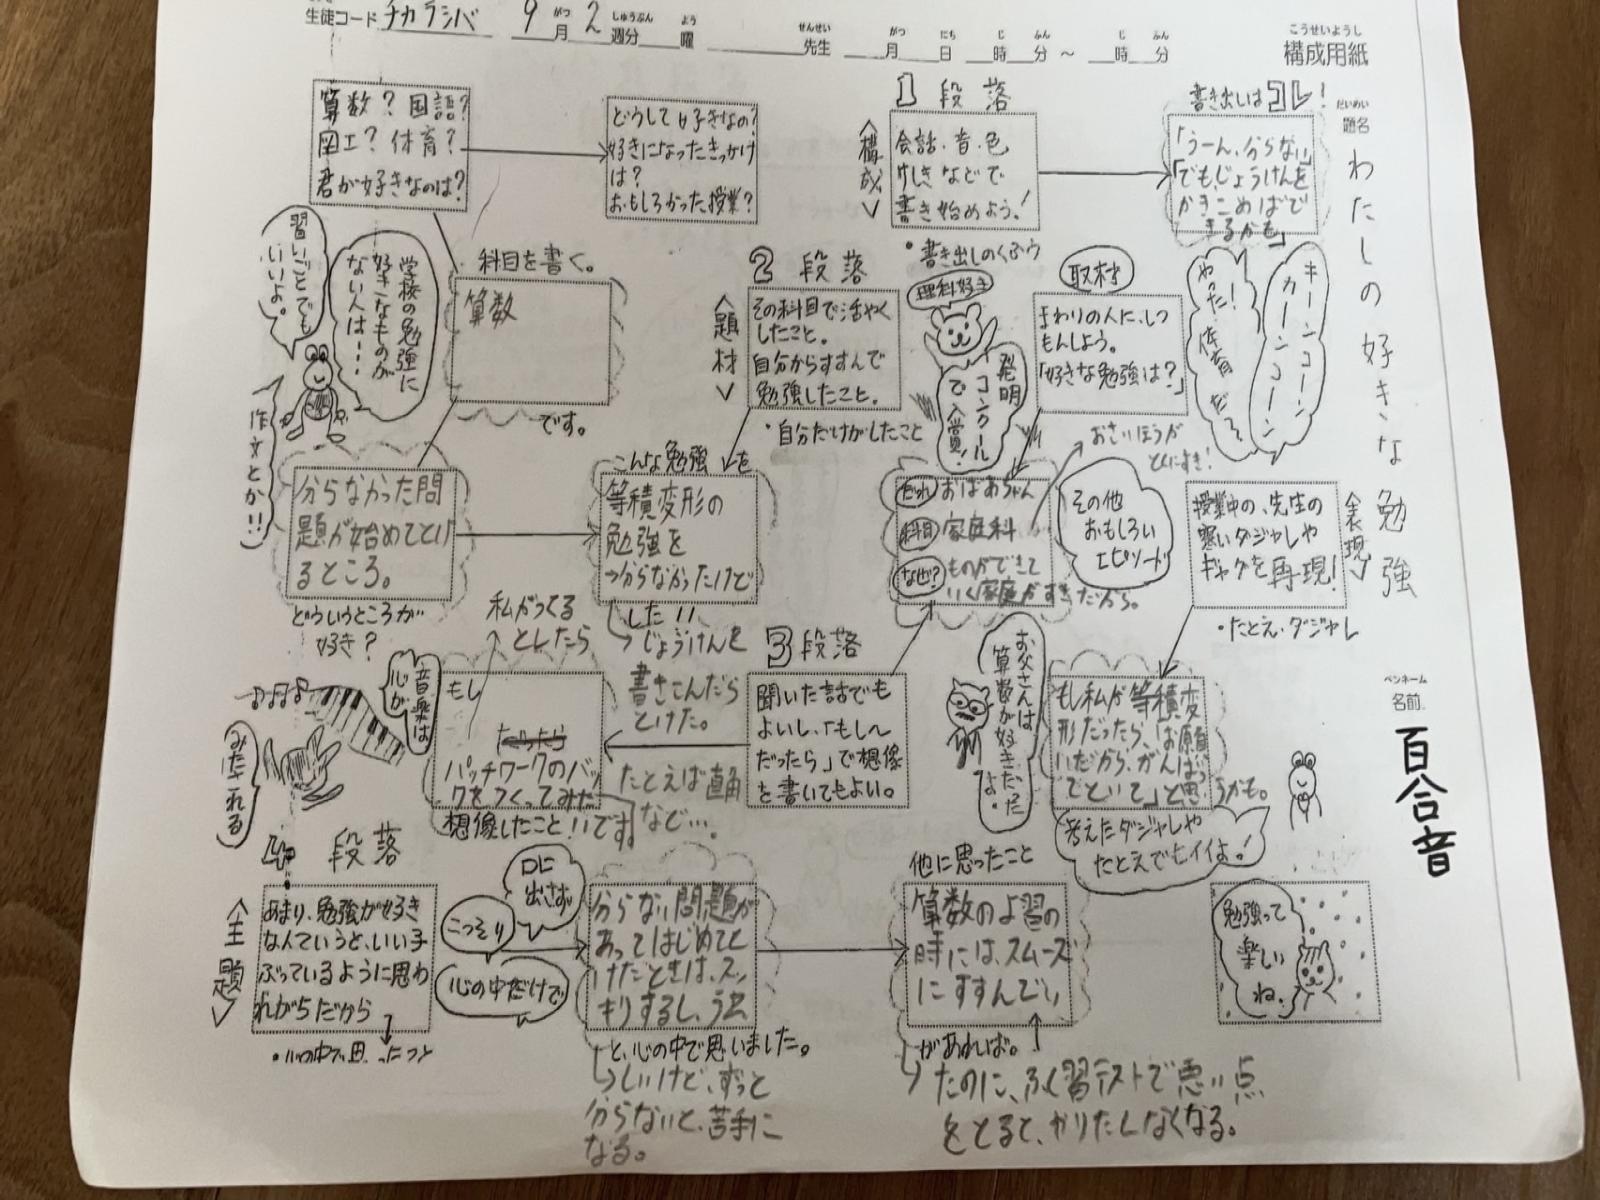 生徒コード チカラシバ 9月2週分 曜 先生 月 日 時 分 ～ 時 分
せいと がつ しゅうぶん よう せんせい がつ にち じ ふん じ ふん
こうせいようし
構成用紙
だいめい
題名
わたしの好きな勉強
ペンネーム
名前
百合音
1段落
<構成>
会話・音・色
けしきなどで
書き始めよう！
・書き出しのくふう
書き出しはコレ！
「うーん、分らない」
「でも、じょうけんを
かきこめばで
きるかも」
キーンコーン
カーンコーン
やった！
体育だぞ
算数？国語？
図工？体育？
君が好きなのは？
どうして好きなの？
好きになったきっかけ
は？
おもしろかった授業？
科目を書く。
算数
です。
学校の勉強に
好きなものが
ない人は・・・
習いごとでも
いいよ。
作文とか!!
分らなかった問
題が始めてとけ
るところ。
どういうところが
好き？
2段落
<題材>
その科目で活やく
したこと。
自分からすすんで
勉強したこと。
・自分だけがしたこと
理科好き
発明
コンクール
で入賞！
取材
まわりの人に、しつ
もんしよう。
「好きな勉強は？」
おさいほうが
とくにすき！
こんな勉強を
等積変形の
勉強を
→分らなかったけど
した!!
じょうけんを
書きこんだら
とけた。
たとえば直角
など…。
だれ おばあちゃん
科目 家庭科
なぜ？ ものができて
いく家庭がすきだから。
その他
おもしろい
エピソード
<表現>
授業中の、先生の
寒いダジャレや
ギャグを再現！
・たとえ・ダジャレ
3段落
聞いた話でも
よいし、「もし～
だったら」で想像
を書いてもよい。
お父さんは
算数が好きだった
よ。
もし私が等積変
形だったら、「お願
いだから、がんばっ
てといて」と思うかも。
考えたダジャレや
たとえでもイイよ。！
私がつくる
としたら
もし
パッチワークのバッ
クをつくってみた
想像したこと!!です
音楽は
心が
みたされる
4段落
<主題>
あまり、勉強が好き
なんていうと、いい子
ぶっているように思わ
れがちだから
・心の中で思ったこと
口に
出さず
こっそり
心の中だけで
分らない問題が
あってはじめてと
けたときは、スッ
キリするし、うれ
と、心の中で思いました。
しいけど、ずっと
分らないと、苦手に
なる。
他に思ったこと
算数のよ習の
時には、スムーズ
にすすんでい
があれば。
たのに、ふく習テストで悪い点
をとると、やりたくなくなる。
勉強って
楽しい
ね、